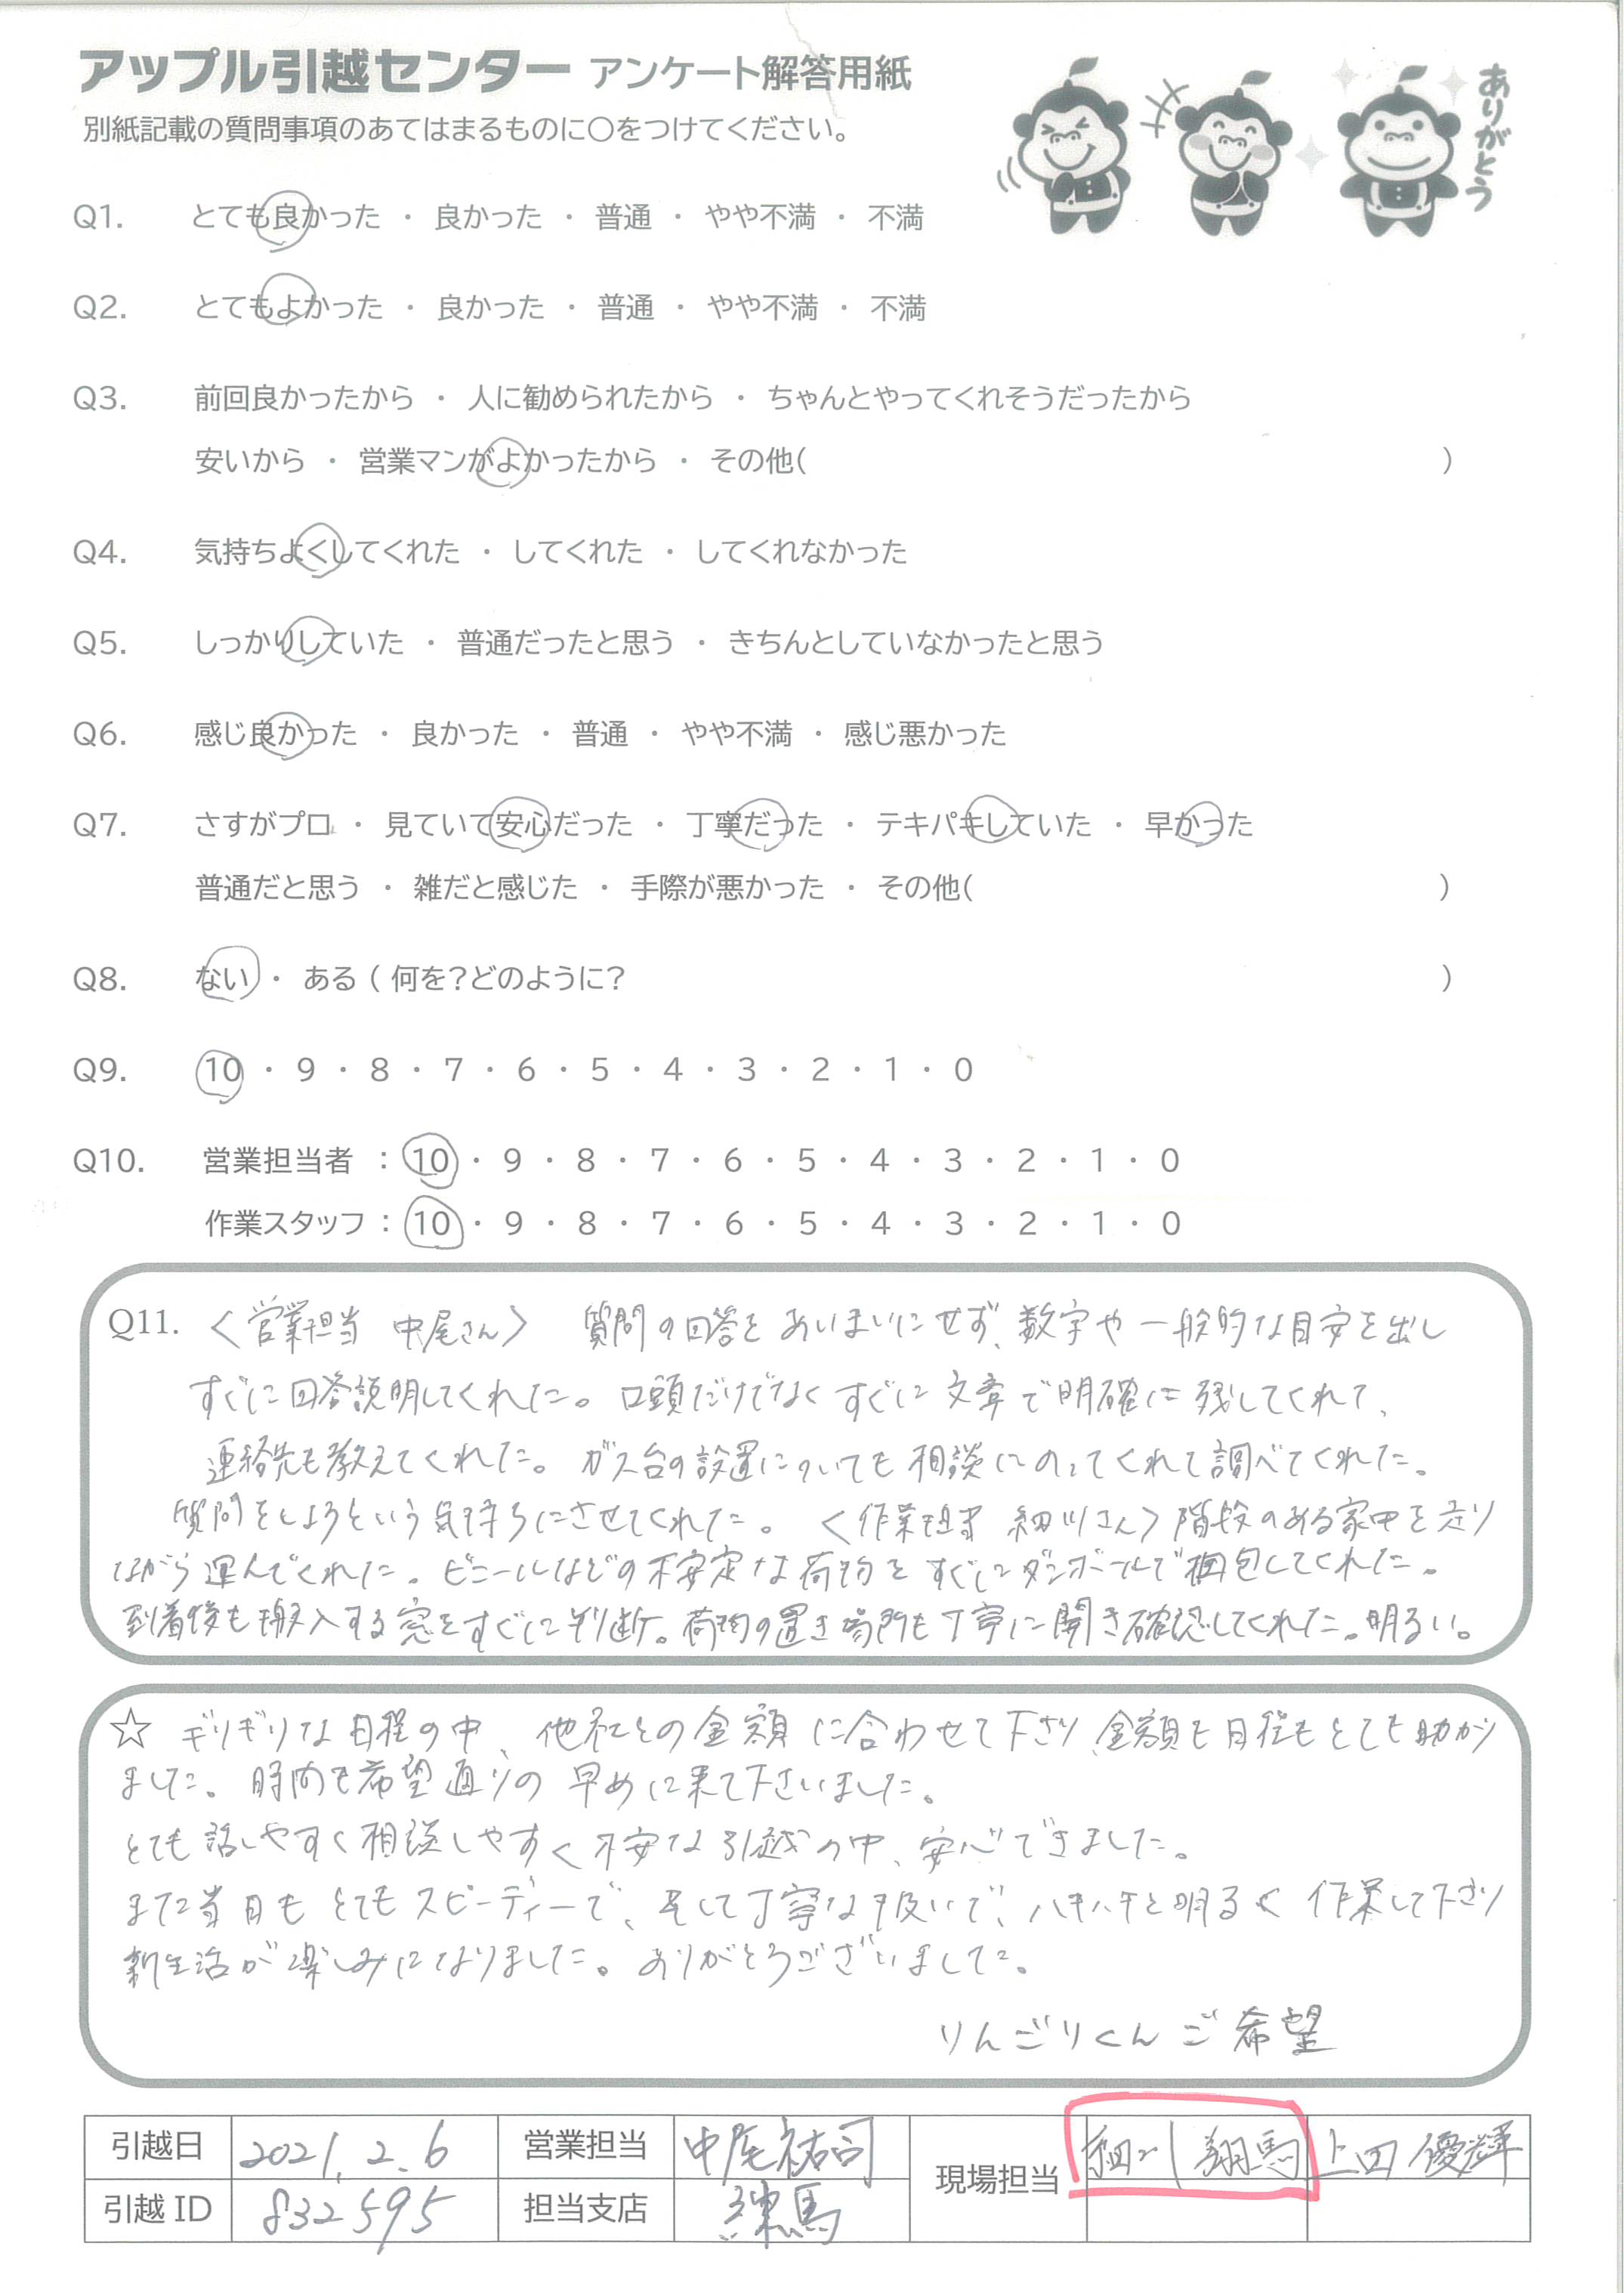 アップル引越センター アンケート解答用紙
ありがとう
別紙記載の質問事項のあてはまるものに○をつけてください。
Q1. とても良かった ・ 良かった ・ 普通 ・ やや不満 ・ 不満
Q2. とてもよかった ・ 良かった ・ 普通 ・ やや不満 ・ 不満
Q3. 前回良かったから ・ 人に勧められたから ・ ちゃんとやってくれそうだったから
安いから ・ 営業マンがよかったから ・ その他( )
Q4. 気持ちよくしてくれた ・ してくれた ・ してくれなかった
Q5. しっかりしていた ・ 普通だったと思う ・ きちんとしていなかったと思う
Q6. 感じ良かった ・ 良かった ・ 普通 ・ やや不満 ・ 感じ悪かった
Q7. さすがプロ ・ 見ていて安心だった ・ 丁寧だった ・ テキパキしていた ・ 早かった
普通だと思う ・ 雑だと感じた ・ 手際が悪かった ・ その他( )
Q8. ない ・ ある ( 何を?どのように? )
Q9. 10 ・ 9 ・ 8 ・ 7 ・ 6 ・ 5 ・ 4 ・ 3 ・ 2 ・ 1 ・ 0
Q10. 営業担当者 : 10 ・ 9 ・ 8 ・ 7 ・ 6 ・ 5 ・ 4 ・ 3 ・ 2 ・ 1 ・ 0
作業スタッフ : 10 ・ 9 ・ 8 ・ 7 ・ 6 ・ 5 ・ 4 ・ 3 ・ 2 ・ 1 ・ 0
Q11. <営業担当 中尾さん> 質問の回答をあいまいにせず、数字や一般的な目安を出し
すぐに回答説明してくれた。口頭だけでなくすぐに文章で明確に残してくれて、
連絡先も教えてくれた。ガス台の設置についても相談にのってくれて調べてくれた。
質問をしようという気持ちにさせてくれた。 <作業担当 細川さん> 階段のある家中を走り
ながら運んでくれた。ビニールなどの不安定な荷物をすぐにダンボールで梱包してくれた。
到着後も搬入する窓をすぐに判断。荷物の置き場所も丁寧に聞き確認してくれた。明るい。
☆ ギリギリな日程の中、他社との金額に合わせて下さり、金額も日程もとても助かり
ました。時間も希望通りの早めに来て下さいました。
とても話しやすく相談しやすく不安な引越の中、安心できました。
また当日もとてもスピーディーで、そして丁寧な扱いで、ハキハキと明るく作業して下さり
新生活が楽しみになりました。ありがとうございました。
りんごりくんご希望
引越日 2021.2.6 営業担当 中尾祐司 現場担当 細川翔馬 上田優輝
引越ID 832595 担当支店 練馬